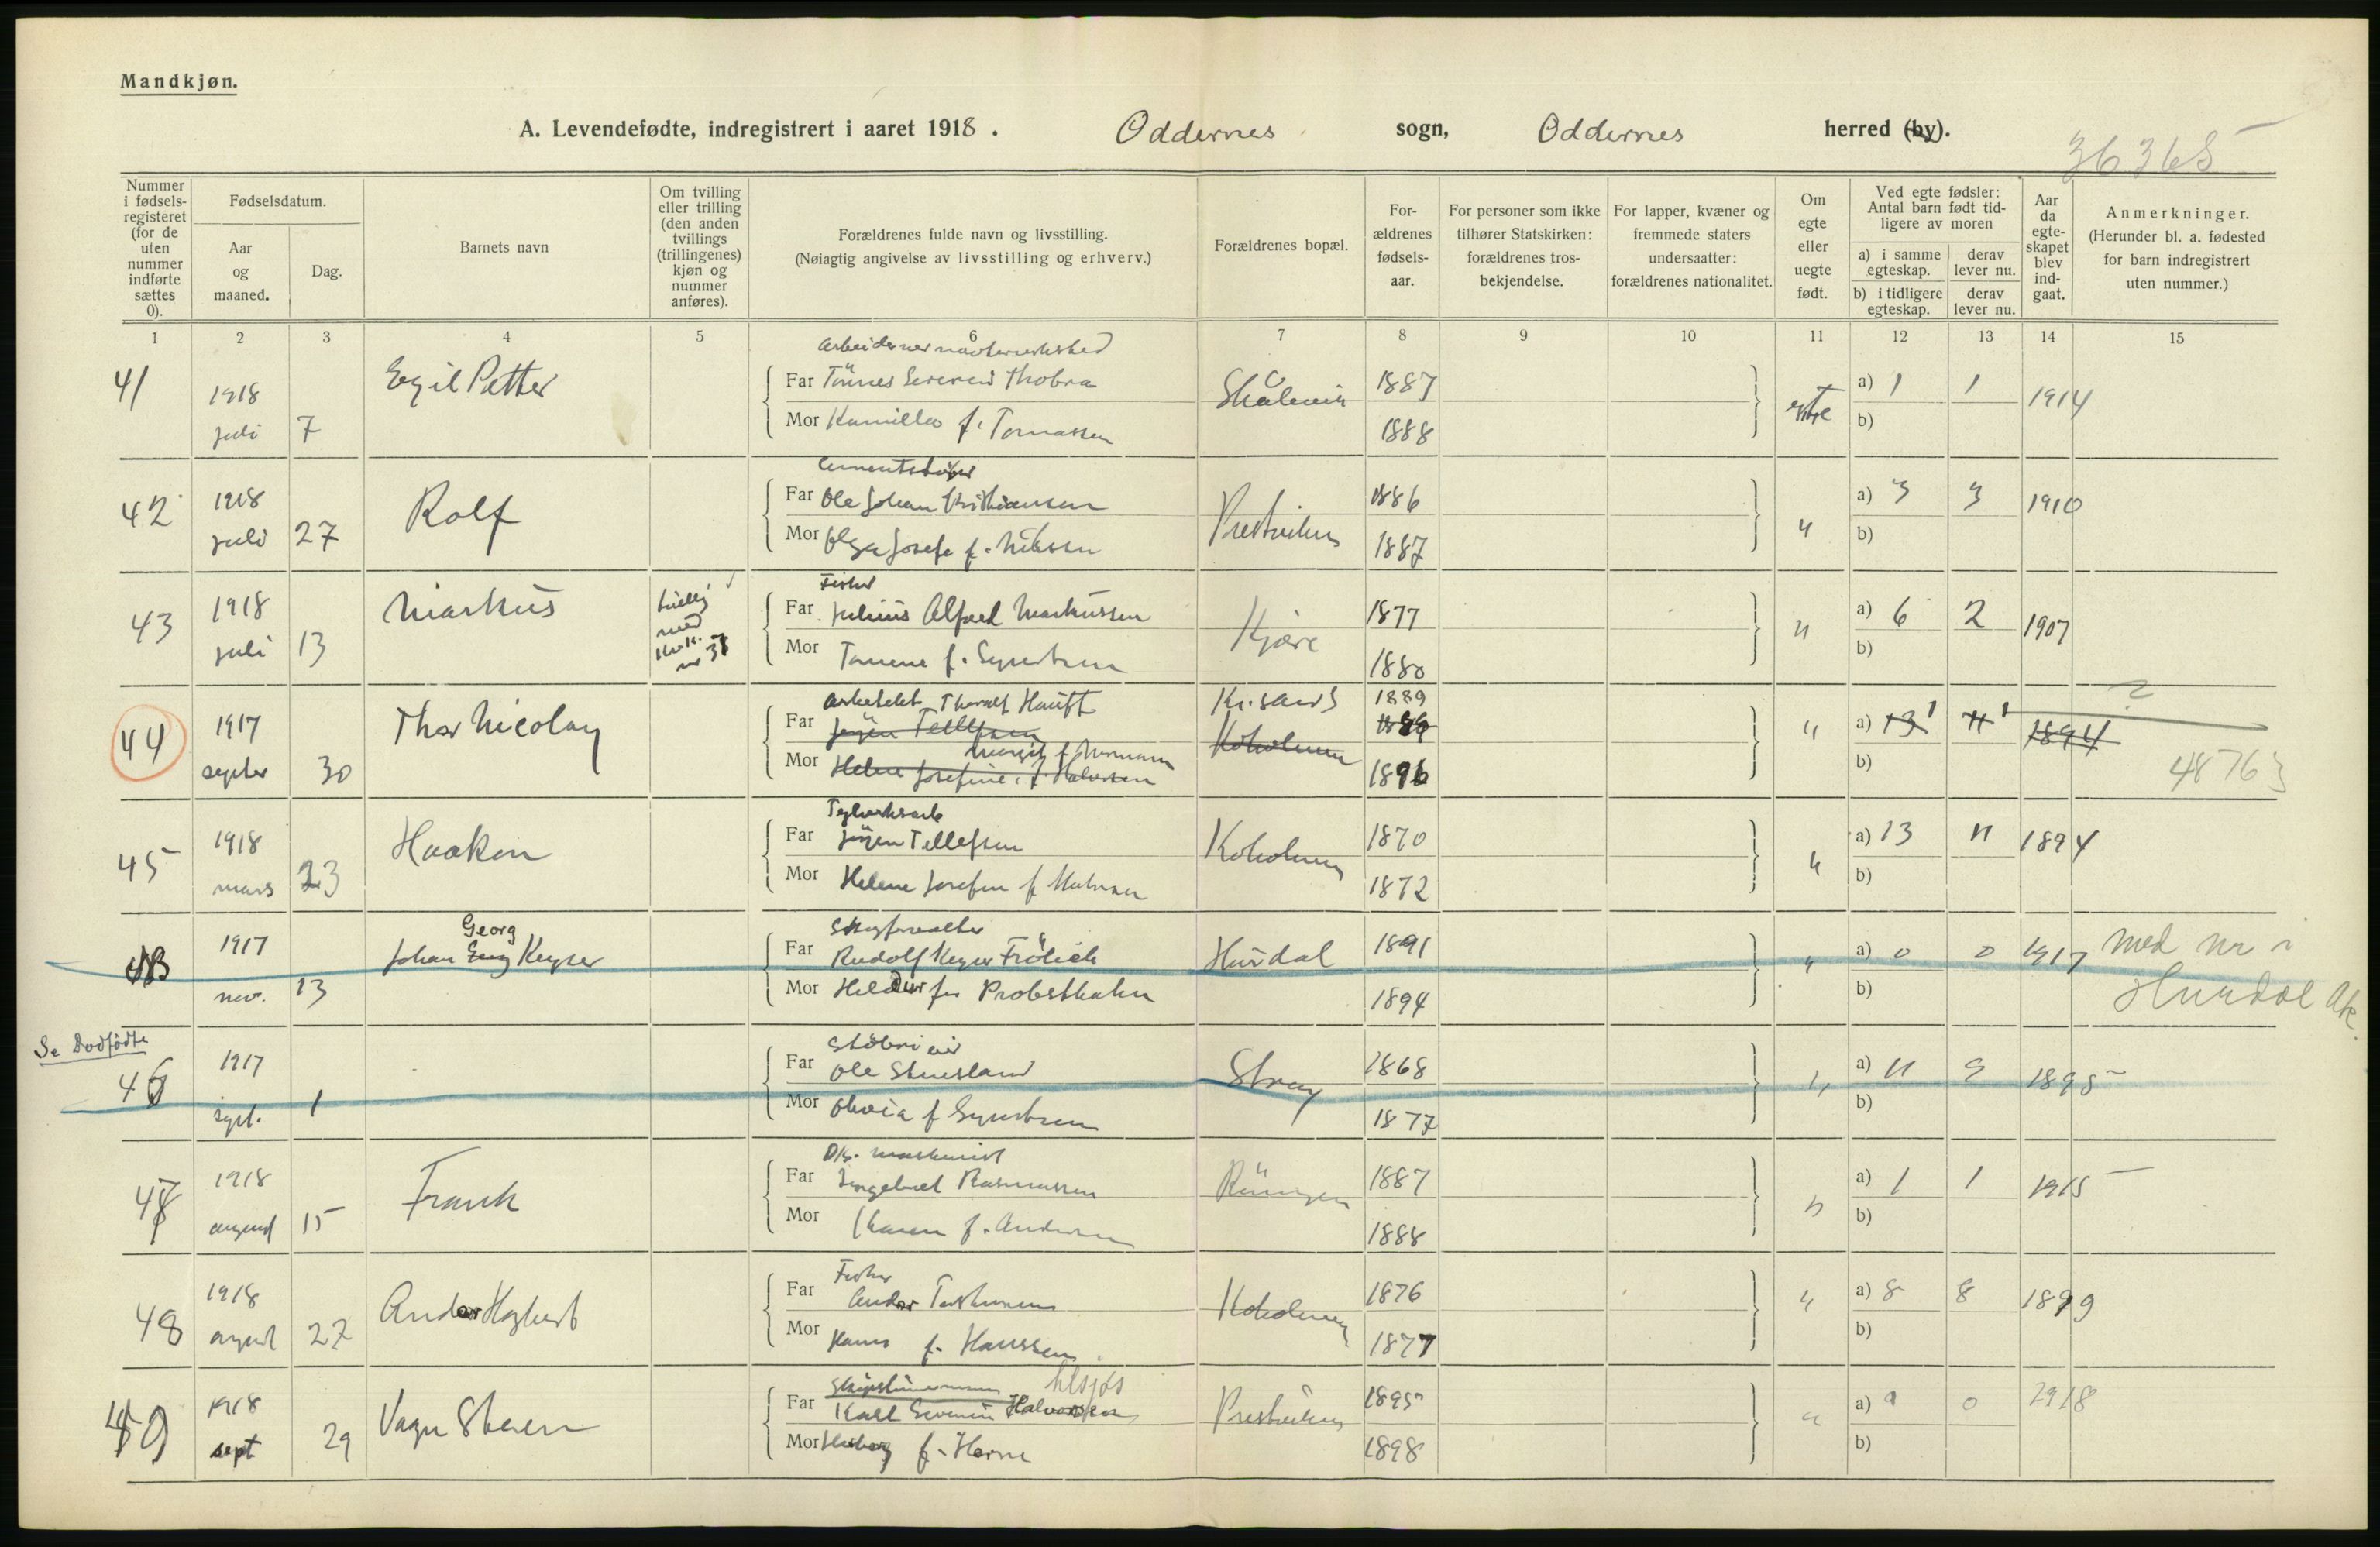 Mandkjøn.
A. Levendefødte, indregistrert i aaret 1918. Oddernes sogn, Oddernes herred (by).
36365
Nummer i fødsels-registeret (for de uten nummer indførte sættes 0).
Fødselsdatum.
Aar og maaned.
Dag.
Barnets navn
Om tvilling eller trilling (den anden tvillings (trillingenes) kjøn og nummer anføres).
Forældrenes fulde navn og livsstilling.
(Nøiagtig angivelse av livsstilling og erhverv.)
Forældrenes bopæl.
For-ældrenes fødsels-aar.
For personer som ikke tilhører Statskirken: forældrenes tros-bekjendelse.
For lapper, kvæner og fremmede staters undersaatter: forældrenes nationalitet.
Om egte eller uegte født.
Ved egte fødsler: Antal barn født tid-ligere av moren
a) i samme egteskap.
derav lever nu.
b) i tidligere egteskap.
derav lever nu.
Aar da egte-skapet blev ind-gaat.
Anmerkninger.
(Herunder bl. a. fødested for barn indregistrert uten nummer.)
1 2 3 4 5 6 7 8 9 10 11 12 13 14 15
41 1918 juli 7 Egil Petter
Far Tönnes Severin Thobra 1887
Mor Kamilla f. Tomassen 1888
egte a) 1 1 1914
b)
42 1918 juli 27 Rolf
Far Ole Johan Kristiansen 1886
Mor Olga Josefe f. Nilsen Prestviken 1887
" a) 3 3 1910
b)
43 1918 juli 13 Markus
tvilling med kvk. nr 37
Fisker
Far Julius Alfred Markussen 1877
Mor f. Syvertsen Kjære 1880
" a) 6 2 1907
b)
44 1917 septbr 30 Thor Nicolay
Arkitekt Thoralf Hauff Kr.sand 1889
Far Jörgen Tellefsen Kokolmen
Margit f. Normann
Mor Helene Josefine f. Halvorsen 1896
" a) 13 1 11 1 1894
b)
?
48763
45 1918 mars 23 Haakon
Far Jörgen Tellefsen Kokolmen 1870
Mor Helene Josefin f. 1872
" a) 13 11 1894
b)
NB 1917 nov. 13
Georg
Johan Keyser
Skogforvalter
Far Rudolf Keyser Frölich Hurdal 1891
Mor Hildur f. Probsthahn 1894
" a) 0 0 1917
b)
med nr i Hurdal Ak.
Se Dødfødte
46 1917 sept. 1
Far Ole Stuesland Stray 1868
Mor Olivia f. Syvertsen 1877
" a) 11 9 1895
b)
47 1918 august 15 Frank
D/s. maskinist
Far Ingebret Rasmussen 1887
Mor Karen f. Andersen 1888
" a) 1 1 1915
b)
48 1918 august 27
Fisker
Far Kokolmen 1876
Mor f. Hanssen 1877
" a) 8 8 1899
b)
49 1918 sept 29 Vagn Steen
Far Karl Severin Halvorsen Prestviken 1895
Mor f. Horne 1898
" a) 0 0 1918
b)